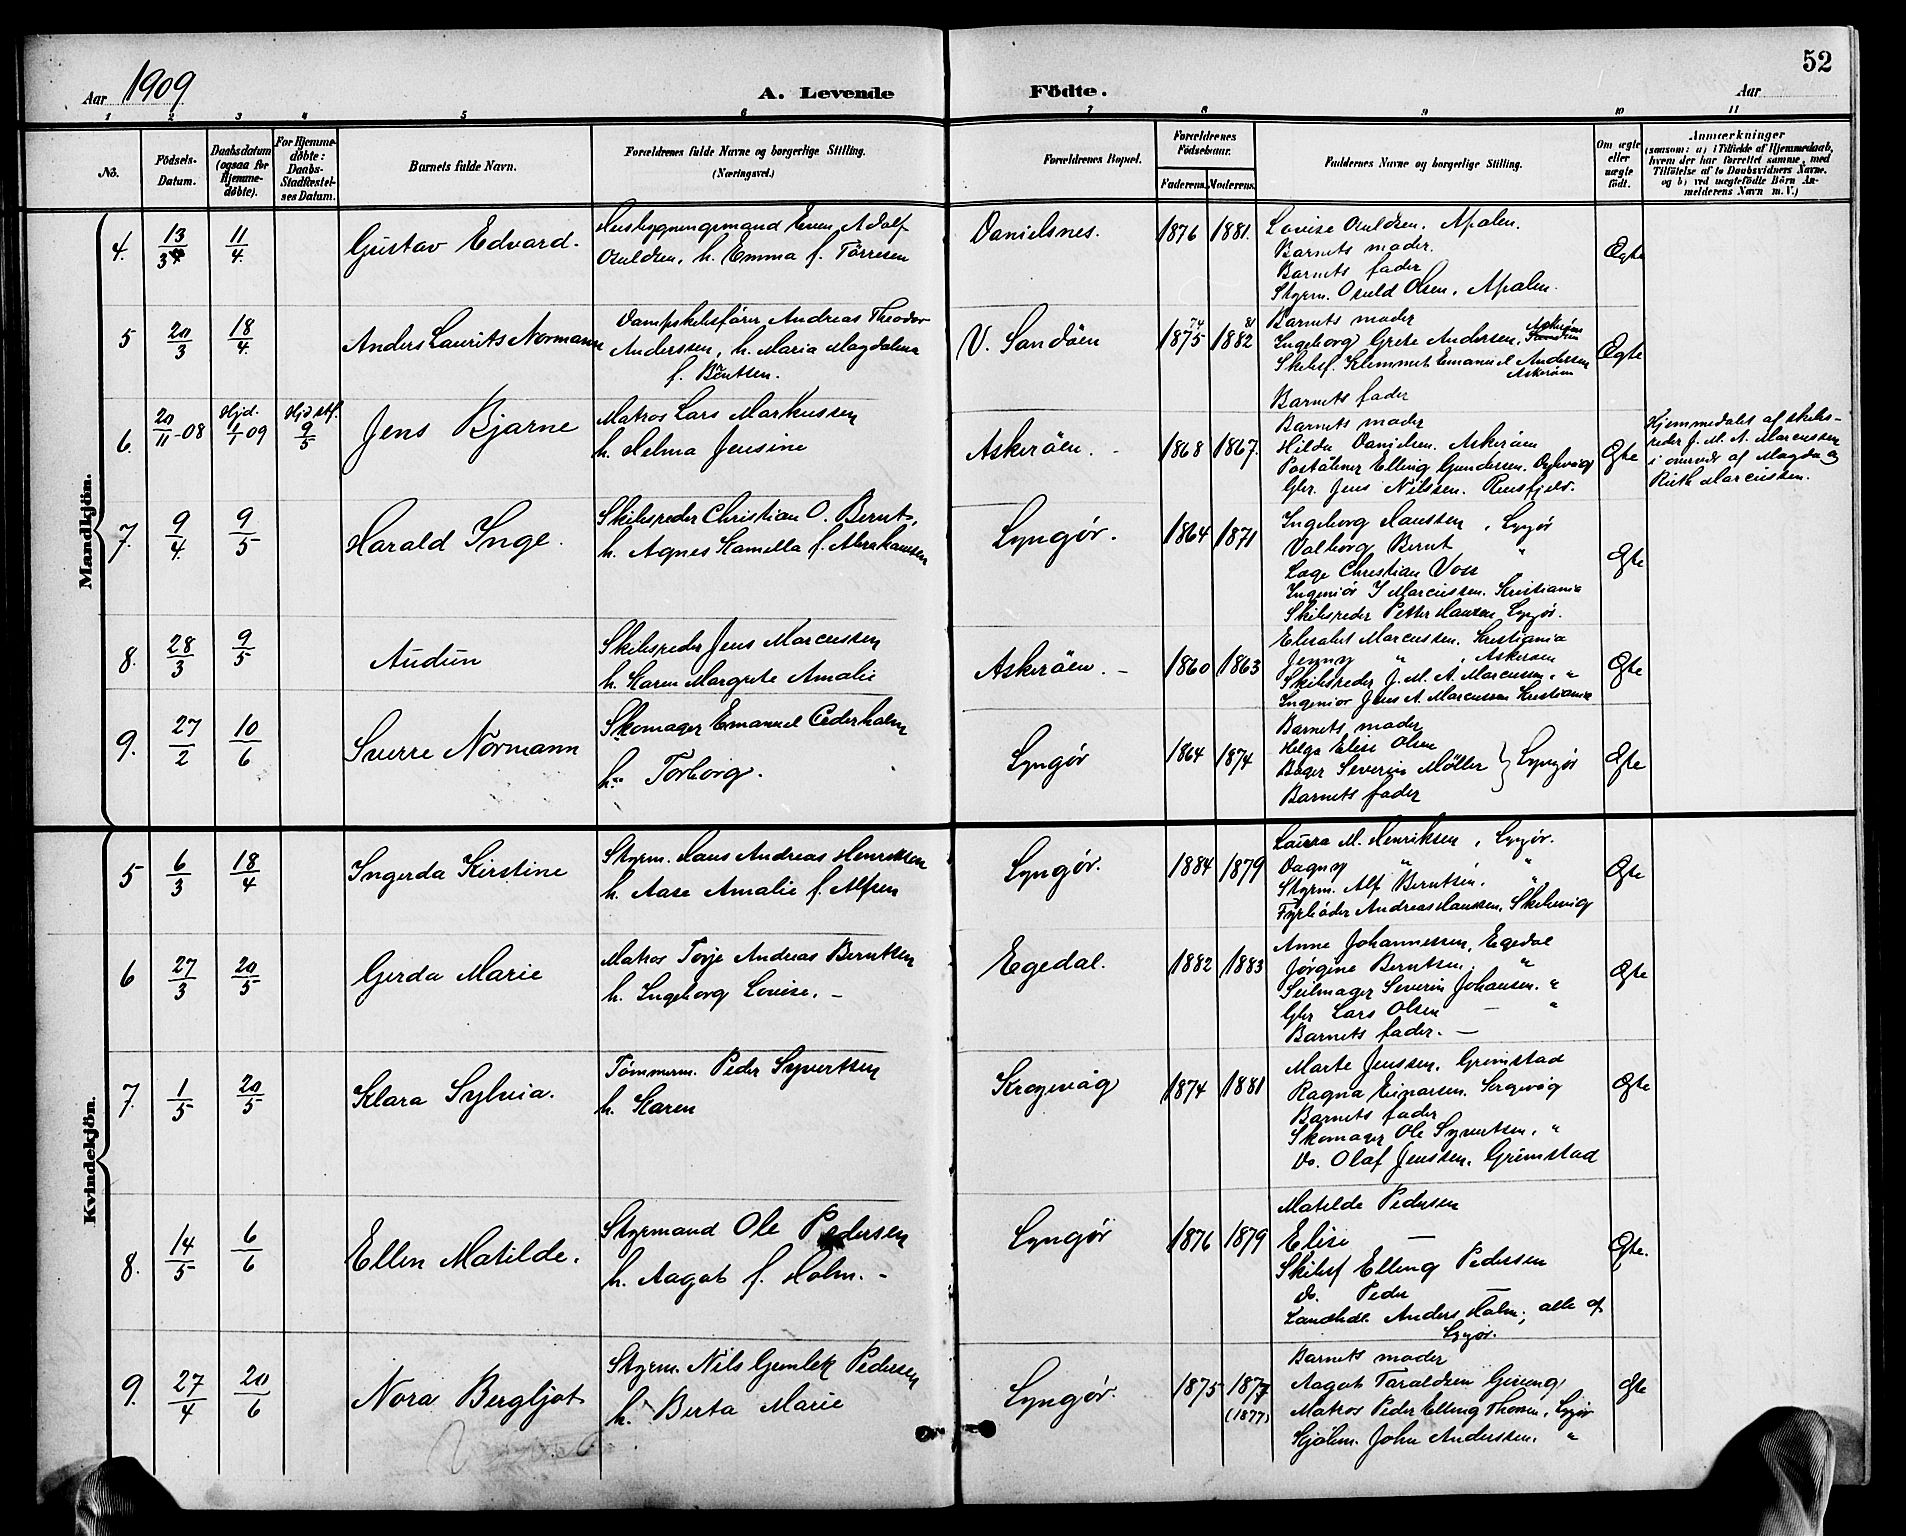 52
Aar 1909
A. Levende Födte.
Aar
1 2 3 4 5 6 7 8 9 10 11
No.
Födsels-Datum.
Daabsdatum (ogsaa for Hjemme-døbte).
For Hjemme-døbte: Daabs-Stadfæstel-ses Datum.
Barnets fulde Navn.
Forældrenes fulde Navne og borgerlige Stilling.
(Næringsvei.)
Forældrenes Bopæl.
Forældrenes Födselsaar.
Faderens. Moderens.
Faddernes Navne og borgerlige Stilling.
Om ægte eller uægte født.
Anmærkninger
(saasom: a) i Tilfælde af Hjemmedaab, hvem der har forrettet samme, med Tilföielse af to Daabsvidners Navne. og b) ved uægtefödte Börn An-melderens Navn m. V.)
Mandkjön.
4. 13/3 11/4 Gustav Edvard.
Husbygningsmand Even Adolf
Osuldsen, h. Emma f. Tørresen
Danielsnes. 1876 1881.
Lovise Osuldsen. Apalen.
Barnets moder.
Barnets fader
Styrm. Osuld Olsen, Apalen.
Ægte
5 20/3 18/4 Anders Laurits Normann
Dampskibsfører Andreas Theodor
Anderssen, h. Maria Magdalena
f. Bentsen.
V. Sandöen 1875 74 1882 81
Barnets moder
Ingeborg Grete Andersen, Askerøen
Skibsf. Klemmet Emanuel Anderssen
Askerøen
Barnets fader
Ægte
6. 20/11-08 Hjd. 1/1 09 Hjd stf. 9/5 Jens Bjarne
Matros Lars Markussen
h. Helma Jensine
Askerøen. 1868 1867.
Barnets moder
Hilda Danielsen. Askerøen
Postaabner Elling Gundersen.
Gbr. Jens Nilssen.
Ægte
Hjemmedøbt af skibs-
reder J. M. A. Marcussen
i overvær af Magda og
Ruth Marcussen.
7. 9/4 9/5 Harald Inge.
Skibsreder Christian O. Bernt,
h. Agnes Kamella f. Abrahamsen
Lyngør. 1864 1871
Ingeborg Hanssen, Lyngør
Valborg Bernt "
Læge Christian Voss
Ingeniør J Marcussen. Kristiania
Skibsreder Petter Hansen Lyngør.
Ægte
8. 28/3 9/5 Audun
Skibsreder Jens Marcussen
h. Karen Margrete Amalie
Askerøen. 1860 1863
Elisabet Marcussen. Kristiania
Jenny " , Askerøen
Skibsreder J. M. A. Marcussen, "
Ingeniør Jens A. Marcussen Kristiania
Ægte
9. 27/2 10/6 Sverre Normann
Skomager Emanuel Cederholm
h. Torborg.
Lyngør 1864 1874
Barnets moder
Helga Elise Olsen
Bager Severin Möller } Lyngør
Barnets fader
Ægte
Kvindekjön.
5 6/3 18/4 Ingerda Kirstine
Styrm. Hans Andreas Henriksen
h. Aase Amalie f. Alfsen
Lyngør. 1884 1879
Laura M. Henriksen, Lyngør.
Dagny " "
Styrm. Alf Berntsen. "
Fyrbøder Andreas Hanssen, Skibsvig
Ægte
6 27/3 20/5 Gerda Marie
Matros Torje Andreas Berntsen
h. Ingeborg Lovise. –
Egedal. 1882 1883
Anne Johannessen, Egedal
Jørgine Berntsen, "
Seilmager Severin Johansen. "
Gbr Lars Olsen — "
Barnets fader. —
Ægte
7. 1/5 20/5 Klara Sylvia.
Tømmerm. Peder Syvertsen
h. Karen
Krogevåg 1874 1881
Marte Jenssen. Grimstad
Ragna Einarsen.
Barnets fader
Skomager Ole Syvertsen, "
Do. Olaf Jenssen. Grimstad
Ægte
8. 14/5 6/6 Ellen Matilde.
Styrmand Ole Pedersen
h. Aagot f. Holm. –
Lyngør 1876 1879
Matilde Pedersen
Elise —
Skibsf Elling Pedersen
Do. Peder —
Landhdl. Anders Holm, alle af
Lyngør.
Ægte.
9. 27/4 20/6 Nora Bergljot
Styrm. Nils Gemlek Pedersen
h. Berta Marie
Lyngør. 1875 1877
(1877)
Barnets moder
Aagot Taraldsen Gjeving
Matros Peder Elling Thorsen, Lyngør
Sjøm. John Anderssen. "
Ægte